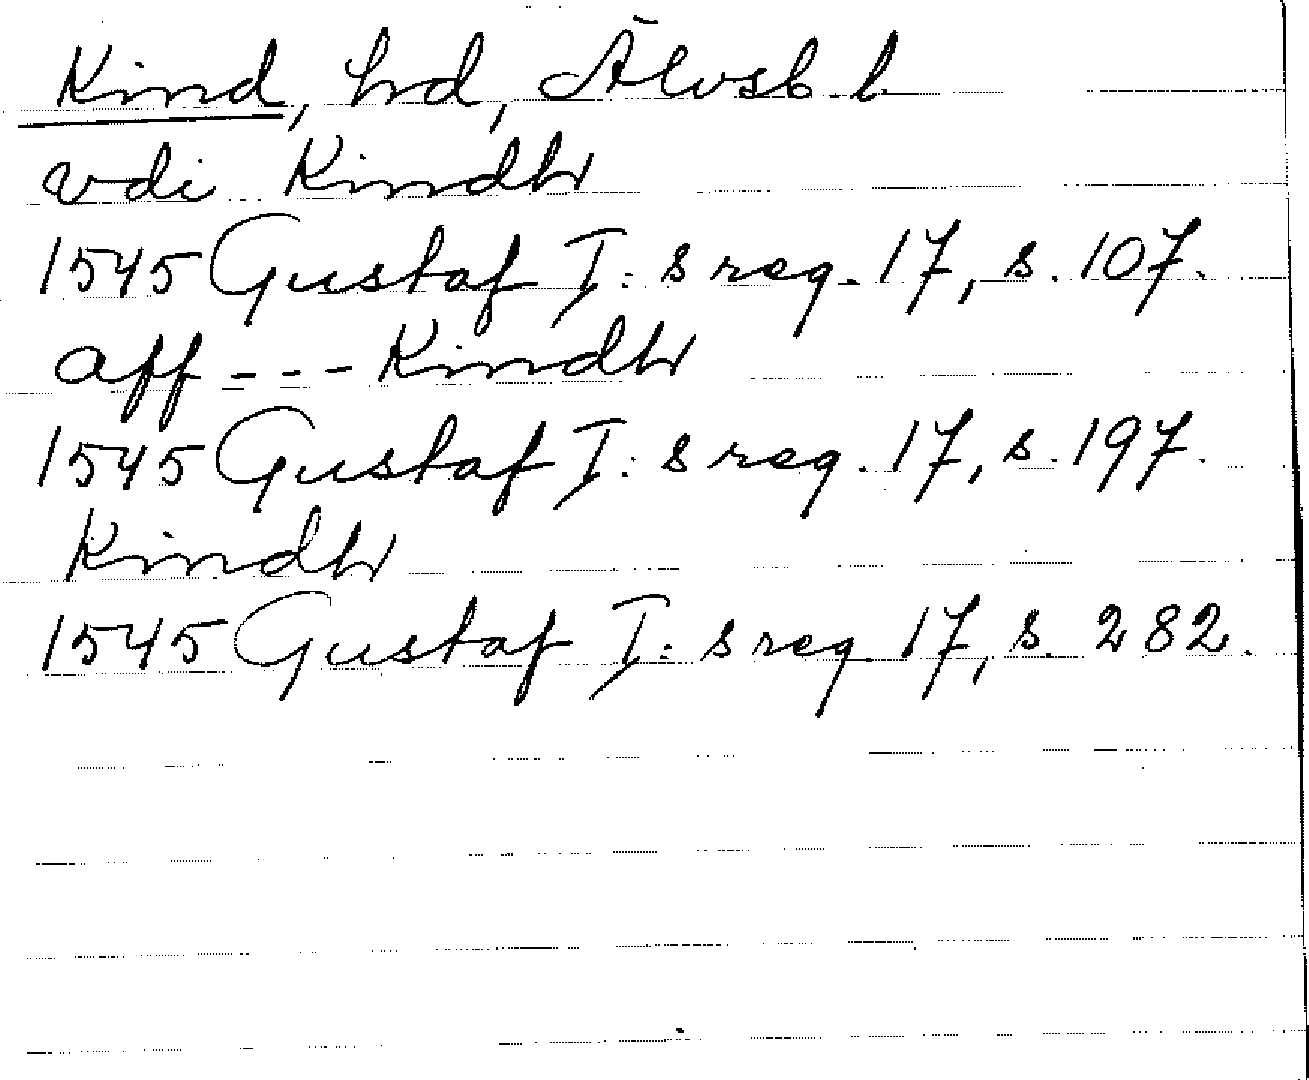 Kind, hd, Älvsb. l.
vdi Kindh
1545 Gustaf I:s reg. 17, s. 107.
aff --- Kindh
1545 Gustaf I:s reg. 17, s. 197.
Kindh
1545 Gustaf I:s reg. 17, s. 282.